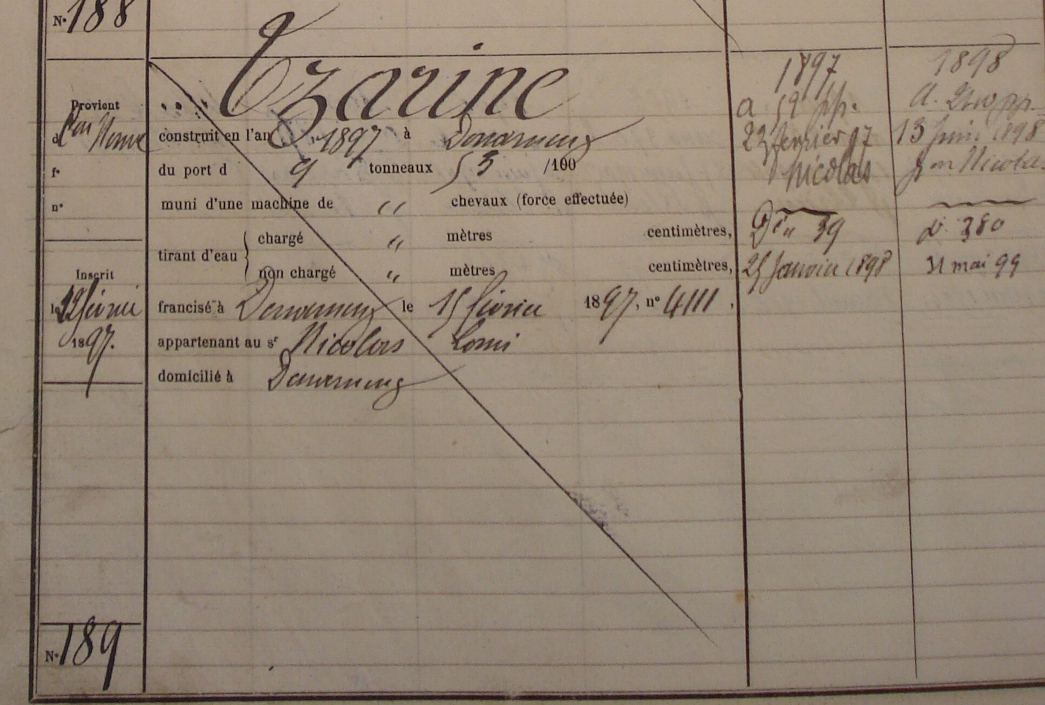 N° 188
Tzarine
Provient
d
f°
n°
construit en l'an 1897 à Douarnenez
du port d 9 tonneaux 53 /100
muni d'une machine de " chevaux (force effectuée)
tirant d'eau { chargé " mètres centimètres,
non chargé " mètres centimètres,
Inscrit
le 12 février
1897.
francisé à Douarnenez le 15 février 1897, n° 4111,
appartenant au sr Nicolas
domicilié à Douarnenez
N° 189
1897
a
23 février 97
Nicolas
Dn 39
25 Janvier 1898
1898
a.
13 Juin 1898
pon Nicolas
d. 380
31 mai 99